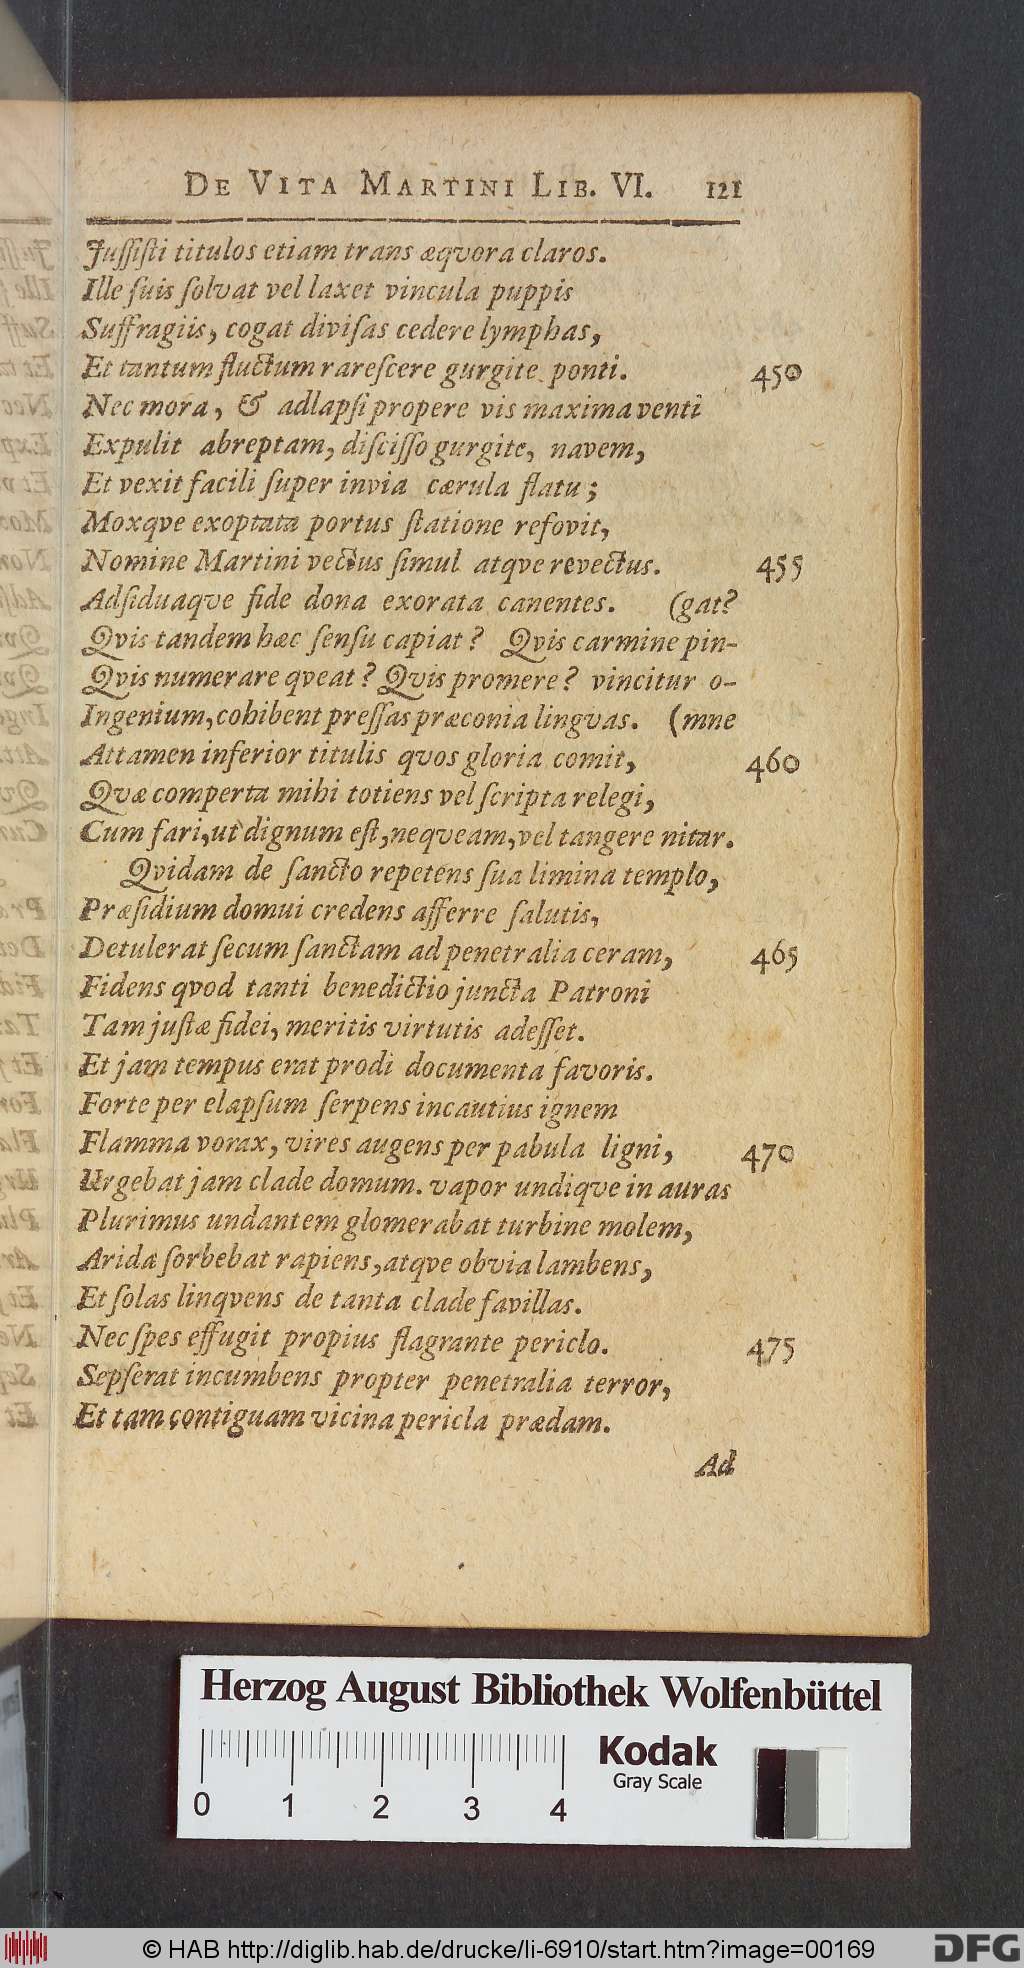 DE VITA MARTINI LIB. VI. 121
Juſſiſti titulos etiam trans æqvora claros.
Ille ſuis ſolvat vel laxet vincula puppis
Suffragiis, cogat diviſas cedere lymphas,
Et tantum fluctum rareſcere gurgite ponti. 450
Nec mora, & adlapſi propere vis maxima venti
Expulit abreptam, diſciſſo gurgite, navem,
Et vexit facili ſuper invia cærula flatu;
Moxqve exoptata portus ſtatione refovit,
Nomine Martini vectus ſimul atqve revectus. 455
Adſiduaqve fide dona exorata canentes. (gat?
Qvis tandem hæc ſenſu capiat? Qvis carmine pin-
Qvis numerare qveat? Qvis promere? vincitur o-
Ingenium, cohibent preſſas præconia lingvas. (mne
Attamen inferior titulis qvos gloria comit, 460
Qvæ comperta mihi totiens vel ſcripta relegi,
Cum fari, ut dignum eſt, neqveam, vel tangere nitar.
Qvidam de ſancto repetens ſua limina templo,
Præſidium domui credens afferre ſalutis,
Detulerat ſecum ſanctam ad penetralia ceram, 465
Fidens qvod tanti benedictio juncta Patroni
Tam juſtæ fidei, meritis virtutis adeſſet.
Et jam tempus erat prodi documenta favoris.
Forte per elapſum ſerpens incautius ignem
Flamma vorax, vires augens per pabula ligni, 470
Urgebat jam clade domum. vapor undiqve in auras
Plurimus undantem glomerabat turbine molem,
Arida ſorbebat rapiens, atqve obvia lambens,
Et ſolas linqvens de tanta clade favillas.
Nec ſpes effugit propius flagrante periclo. 475
Sepſerat incumbens propter penetralia terror,
Et tam contiguam vicina pericla prædam.
Ad
Herzog August Bibliothek Wolfenbüttel
Kodak
Gray Scale
0 1 2 3 4
© HAB http://diglib.hab.de/drucke/li-6910/start.htm?image=00169
DFG